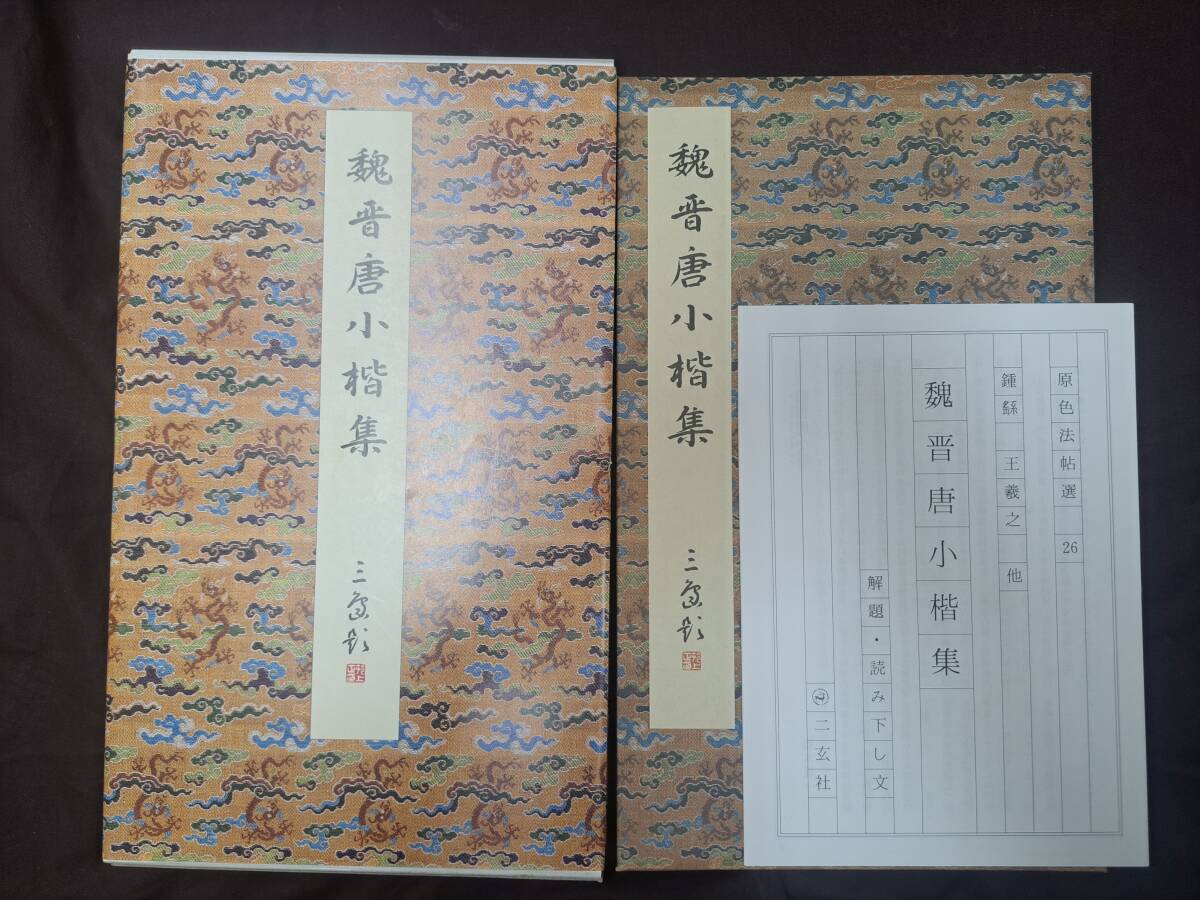 魏晋唐小楷集
魏晋唐小楷集
原色法帖選 26
鍾繇 王羲之 他
魏晋唐小楷集
解題・読み下し文
二玄社